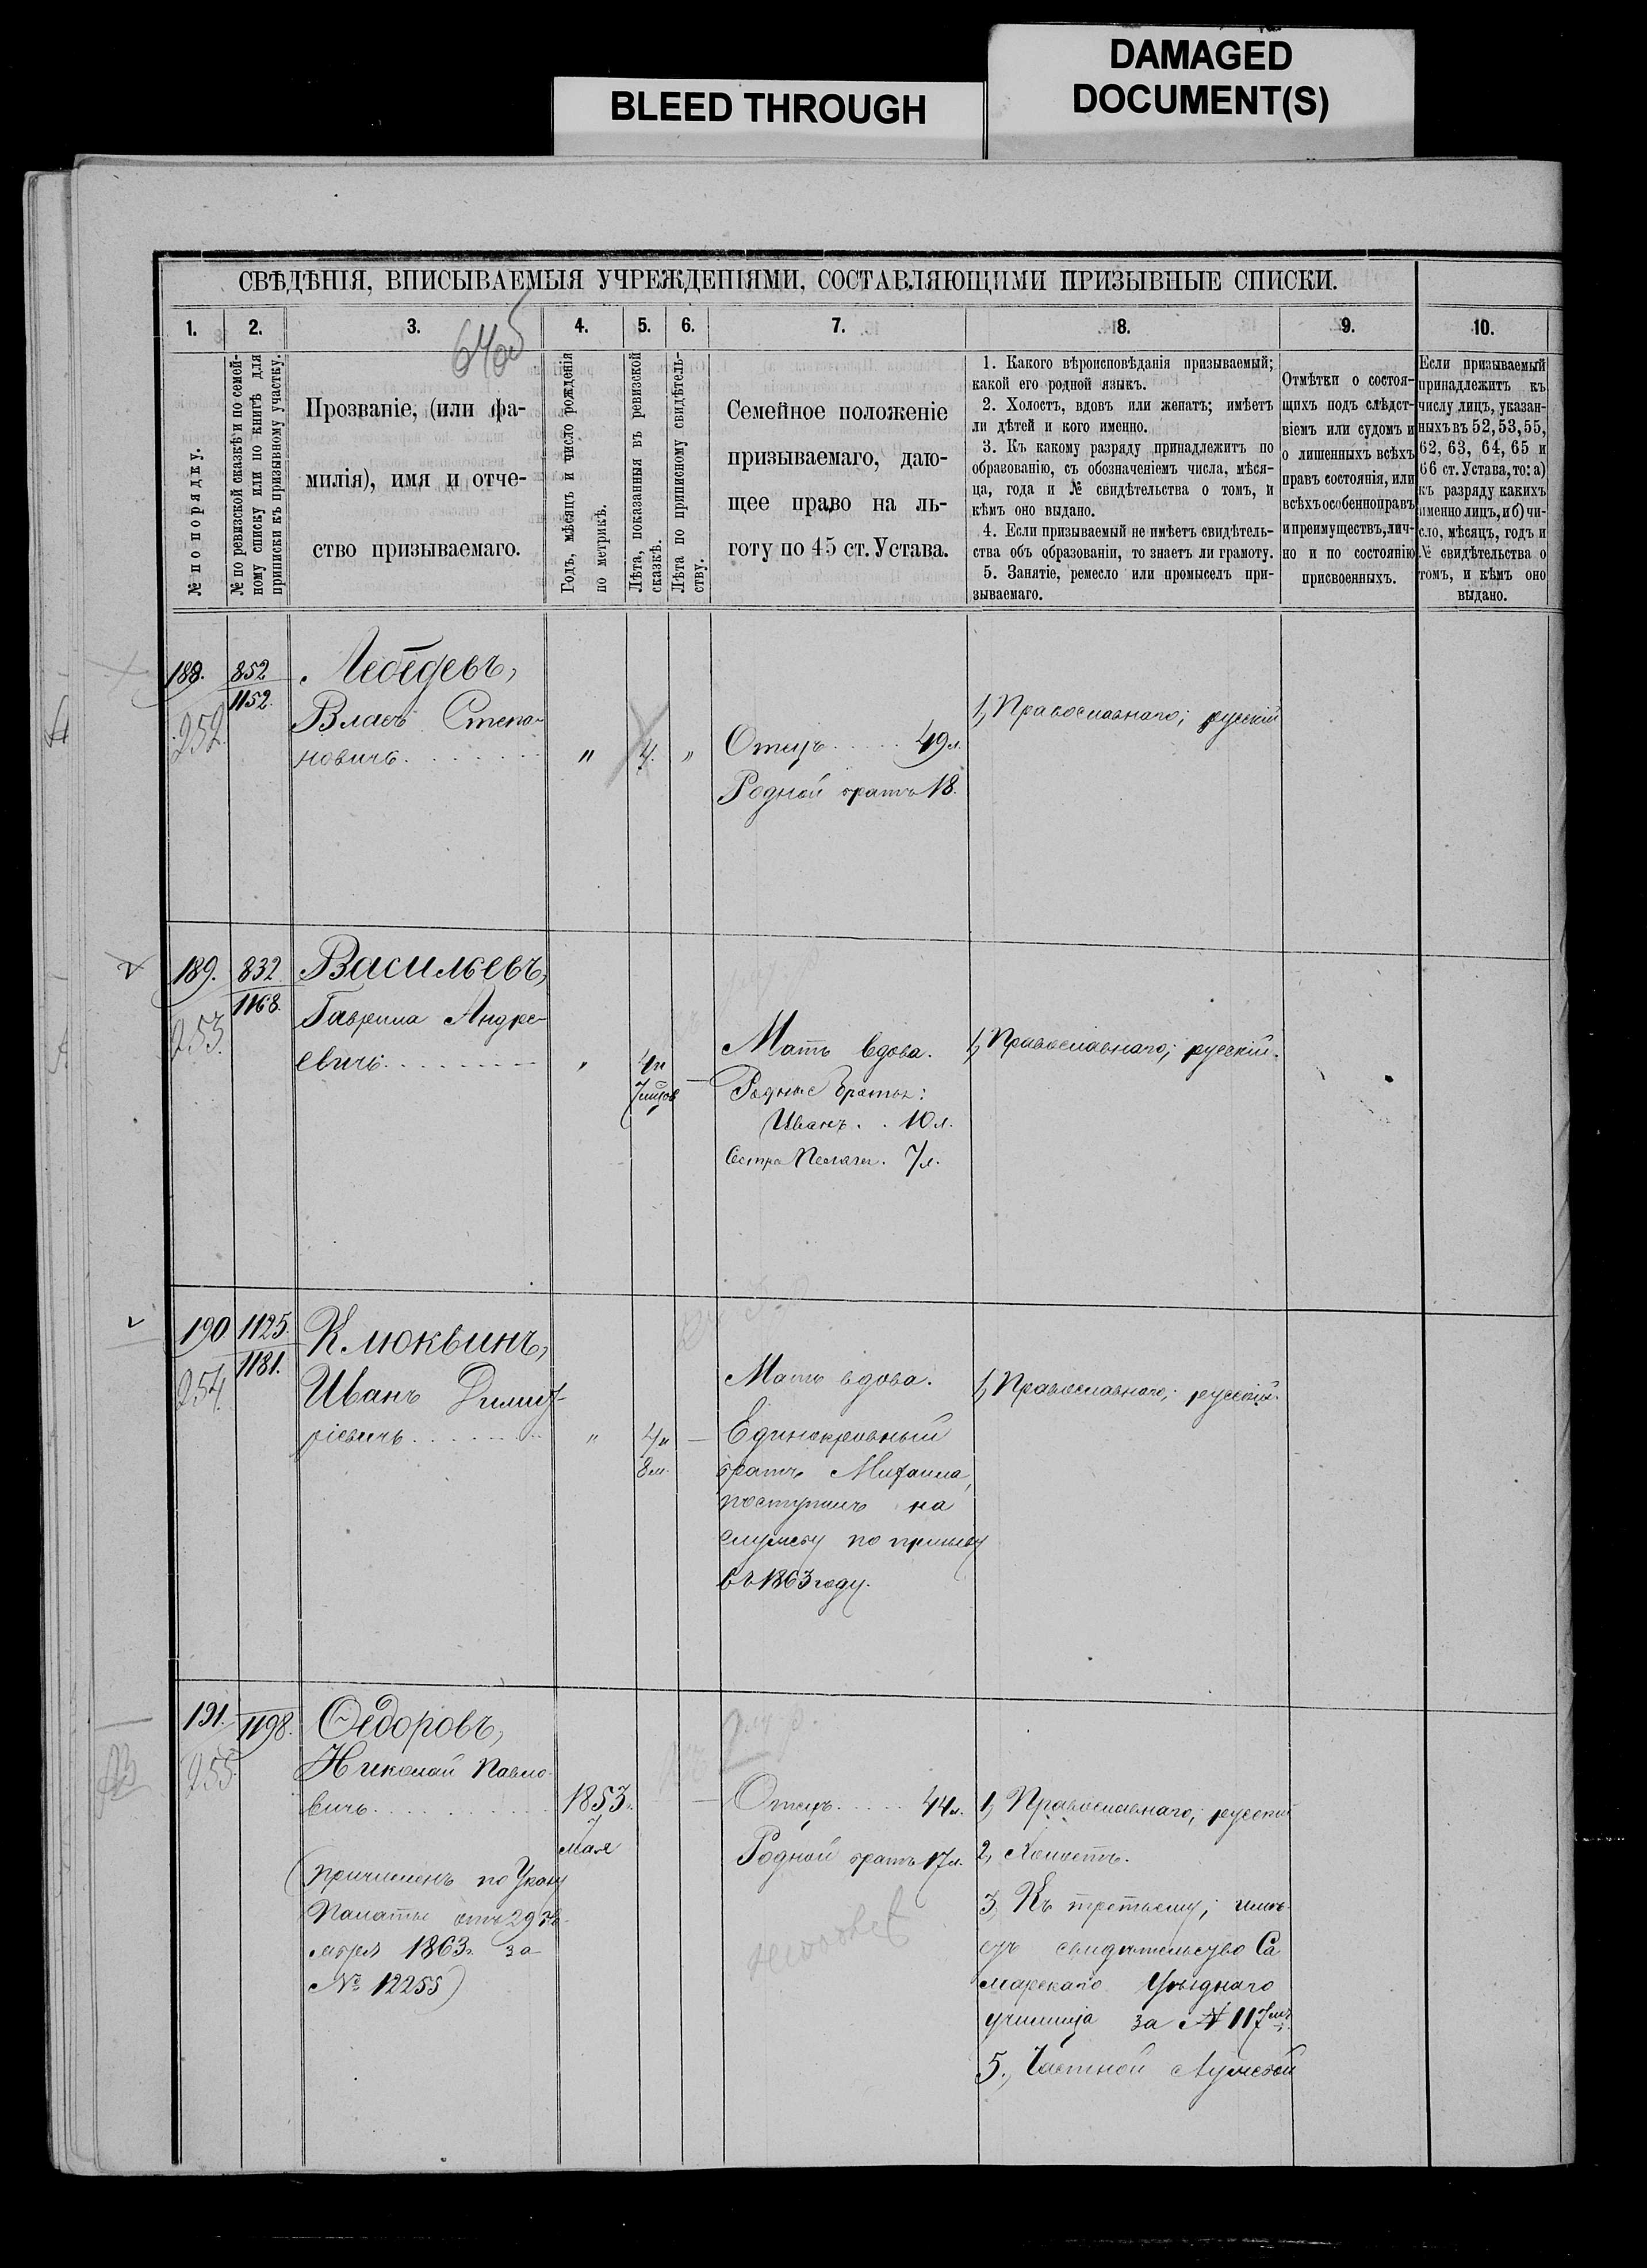 BLEED THROUGH
DAMAGED
DOCUMENT(S)
СВѢДѢНІЯ, ВПИСЫВАЕМЫЯ УЧРЕЖДЕНІЯМИ, СОСТАВЛЯЮЩИМИ ПРИЗЫВНЫЕ СПИСКИ.
1.
2.
3.
4.
5.
6.
7.
8.
9.
10.
64об
№ по порядку.
№ по ревизской сказкѣ и по семей-
ному списку или по книгѣ для
приписки къ призывному участку.
Прозваніе, (или фа-
милія), имя и отче-
ство призываемаго.
Годъ, мѣсяцъ и число рожденія
по метрикѣ.
Лѣта, показанныя въ ревизской
сказкѣ.
Лѣта по приписному свидѣтель-
ству.
Семейное положеніе
призываемаго, даю-
щее право на ль-
готу по 45 ст. Устава.
1. Какого вѣроисповѣданія призываемый;
какой его родной языкъ.
2. Холостъ, вдовъ или женатъ; имѣетъ
ли дѣтей и кого именно.
3. Къ какому разряду принадлежитъ по
образованію, съ обозначеніемъ числа, мѣся-
ца, года и № свидѣтельства о томъ, и
кѣмъ оно выдано.
4. Если призываемый не имѣетъ свидѣтель-
ства объ образованіи, то знаетъ ли грамоту.
5. Занятіе, ремесло или промыселъ при-
зываемаго.
Отмѣтки о состоя-
щихъ подъ слѣдст-
віемъ или судомъ и
о лишенныхъ всѣхъ
правъ состоянія, или
всѣхъ особенно правъ
и преимуществъ, лич-
но и по состоянію
присвоенныхъ.
Если призываемый
принадлежитъ къ
числу лицъ, указан-
ныхъ въ 52, 53, 55,
62, 63, 64, 65 и
66 ст. Устава, то: а)
къ разряду какихъ
именно лицъ, и б) чи-
сло, мѣсяцъ, годъ и
№ свидѣтельства о
томъ, и кѣмъ оно
выдано.
188.
252.
852
1152.
Лебедевъ,
Власъ Степа-
новичъ
"
4.
"
Отецъ 49 л.
Родной братъ 18.
1, Православнаго; русскій
189.
253.
832
1168.
Васильевъ,
Гаврила Андре-
евичъ
"
4 л
7
Мать вдова.
Родные братья:
Иванъ 10 л.
Сестра Пелагея. 7 л.
1, Православнаго; русскій.
190
254.
1125.
1181.
Клюквинъ,
Иванъ Димит-
ріевичъ
"
4 л
8 м.
Мать вдова.
Единокровный
братъ Михаила,
поступилъ на
службу по призыву
въ 1863 году.
1, Православнаго; русскій.
191.
255.
1198.
Ѳедоровъ,
Николай Павло-
вичъ
(причисленъ по Указу
Палаты отъ 29 Но-
ября 1863 г. за
№ 12255)
1853 г.
7
мая
Отецъ 44 л.
Родной братъ 17 л.
1, Православнаго; русскій
2, Холостъ.
3, Къ третьему; имѣ-
етъ свидѣтельство Са
марскаго Уѣзднаго
училища за № 117
5., Частной службой